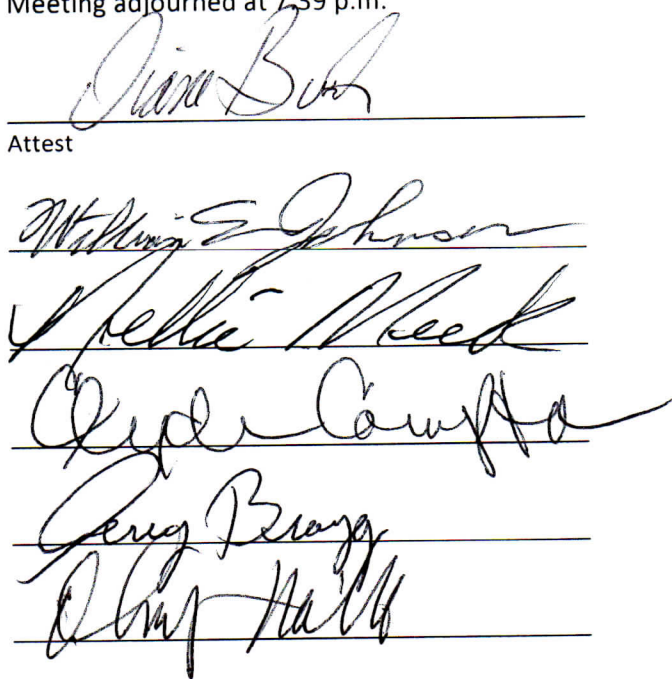 Meeting adjourned at 7:39 p.m.
Diana
Attest
William E Johnson
Nellie Meek
Clyde Compton
Bragg